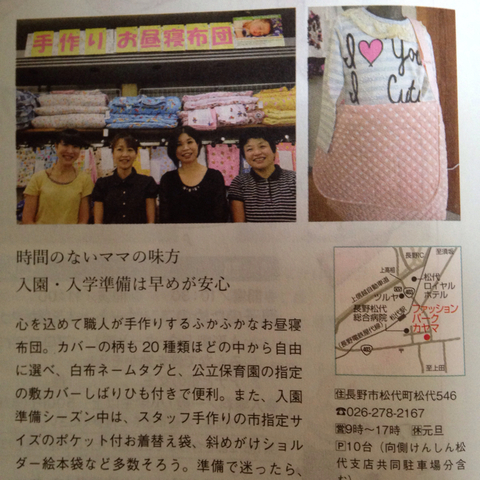 手作り お昼寝布団
I ♥ You
I Cut
時間のないママの味方
入園・入学準備は早めが安心
心を込めて職人が手作りするふかふかなお昼寝
布団。カバーの柄も20種類ほどの中から自由
に選べ、白布ネームタグと、公立保育園の指定
の敷カバーしばりひも付きで便利。また、入園
準備シーズン中は、スタッフ手作りの市指定サ
イズのポケット付お着替え袋、斜めがけショル
ダー絵本袋など多数そろう。準備で迷ったら、
長野IC
至須坂
上高相
上信越自動車道
403
松代
ロイヤル
ホテル
ツルヤ
長野松代
総合病院
松代駅
ファッション
パーク
カヤマ
(長野電鉄屋代線)
403
至上田
㊟長野市松代町松代546
☎026-278-2167
営9時〜17時 休元旦
P10台(向側けんしん松
代支店共同駐車場分含